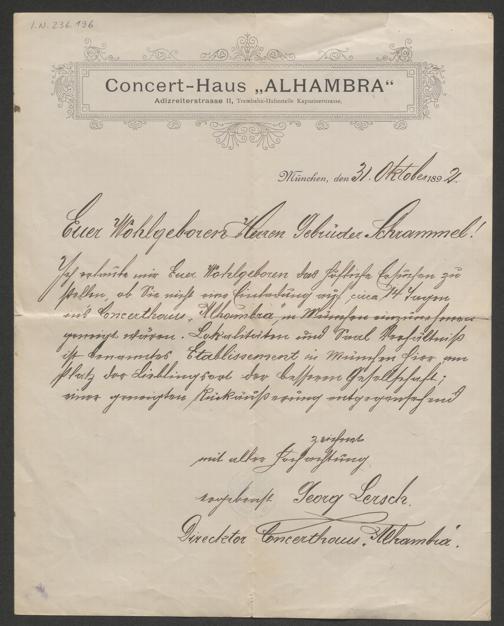 I.N. 236.196
Concert-Haus „ALHAMBRA“
Adlzreiterstrasse 11, Trambahn-Haltestelle Kapuzinerstrasse.
München, den 31. Oktober 1892.
Euer Wohlgeboren Herren Gebrüder Schrammel!
Ich erlaube mir Euer Wohlgeboren das höfliche Ersuchen zu
stellen, ob Sie nicht eine Einladung auf circa 14 Tagen
ins Concerthaus „Alhambra“ in München einzu
geneigt wären. Lokalitäten und Saal Verhältniß
ist benanntes Etablissement in München hier am
Platz der Lieblingsort der besseren Gesellschaft;
einer geneigten Rückäußerung entgegensehend
zeichnet
mit aller Hochachtung
ergebenst Georg Lersch.
Direcktor Concerthaus „Alhambra“.